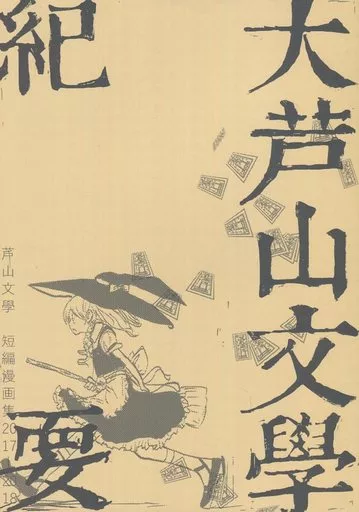 大芦山文學
紀要
芦山文學 短編漫画集2017-2018